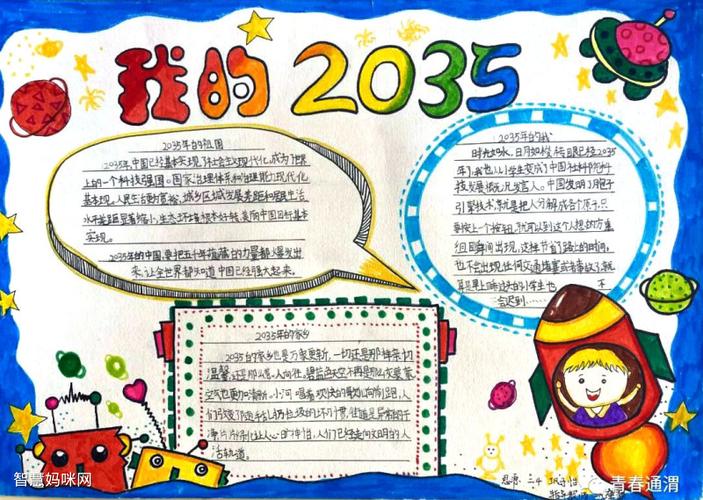 我的2035
2035年的祖国
2035年,中国已经基本实现了社会主义现代化,成为了世
上的一个科技强国。国家治理体系和治理能力现代化
基本现。人民生活更为富裕,城乡区域发展差距和居民生活
水平差距显著缩小,生态环境根本好转,美丽中国目标基本
实现。
2035年的中国,要把五千年蕴藏的力量都爆发出
来,让全世界都知道中国已经强大起来。
2035年的我
时光如水,日月如梭,转眼已经2035
年了,我也从小学生变成了中国社科院科
技发展研究所发言人。中国发明了
引擎技术,就是把人分解成各个原子,只
要按上一个按钮,就可以到这个人想去的方重
组回瞬间出现,这样节约了路上的时间,
也不会出现任何交通堵塞或者事故了,就
算早上睡过头的小学生也不
会迟到……
2035年的家乡
2035的家乡也是万家更新,一切还是那样亲切
温馨,还是那么令人向往。碧蓝天空不再是那么灰蒙蒙
空气也更加清新。小河唱着欢快的歌儿向前跑,人
们改变了随手乱扔垃圾的坏习惯,
人们已经走向文明的人
活轨道。
智慧妈咪网
青春通渭